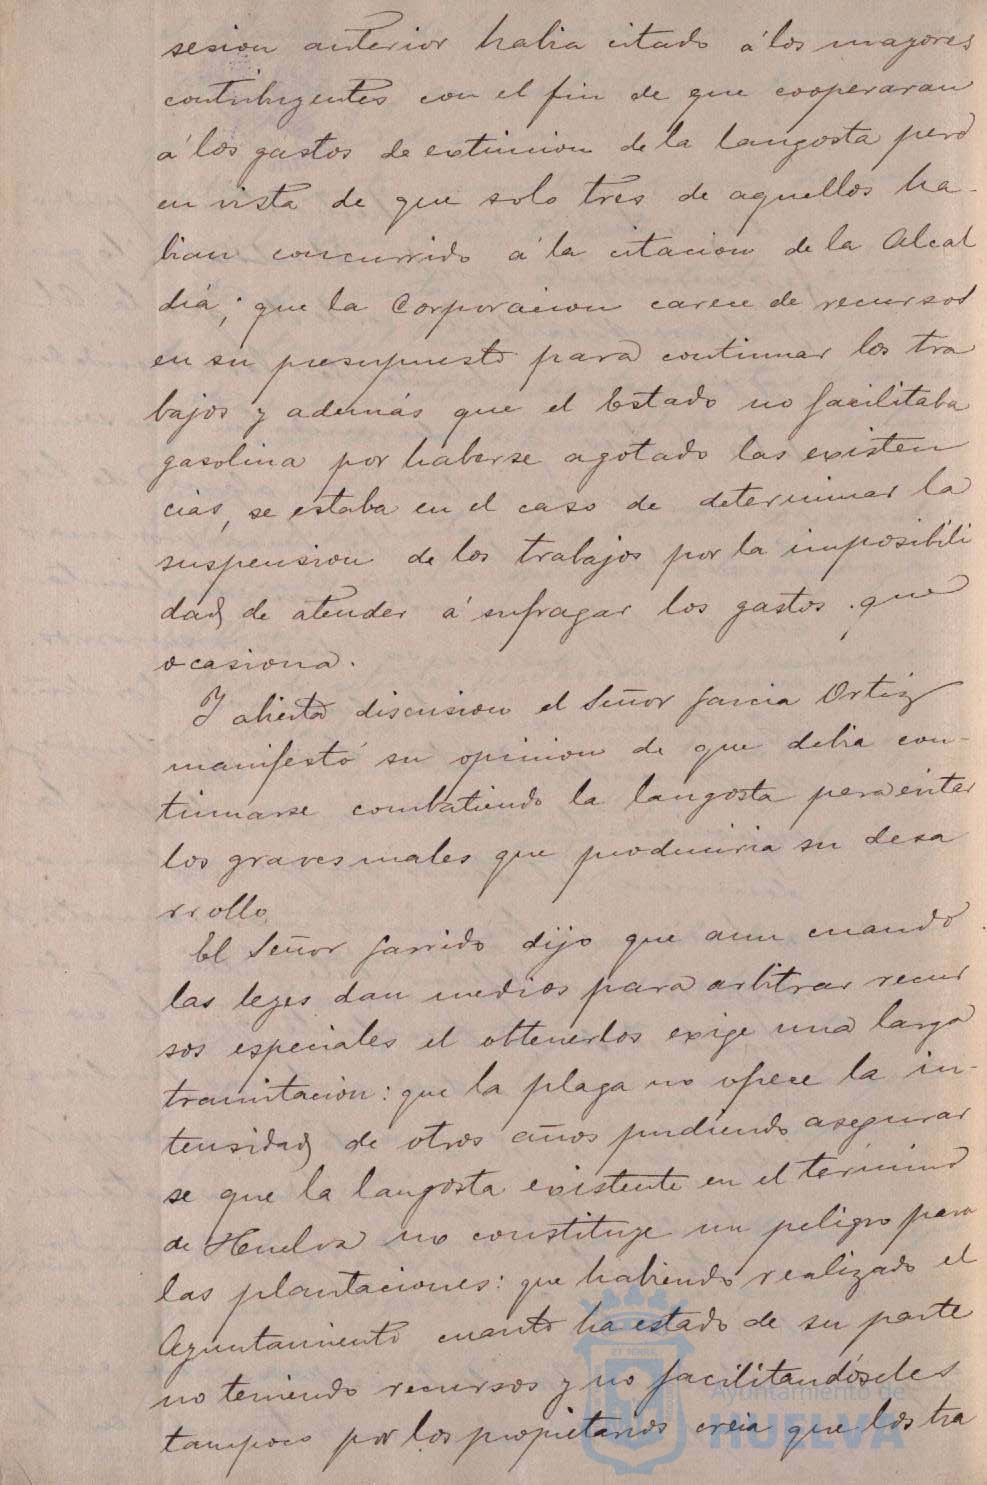 sesion anterior habia citado á los mayores
contribuyentes con el fin de que cooperaran
á los gastos de extincion de la langosta pero
en vista de que solo tres de aquellos ha-
bian concurrido á la citacion de la Alcal
dia; que la Corporacion carece de recursos
en su presupuesto para continuar los tra
bajos y además que el Estado no facilitaba
gasolina por haberse agotado las existen
cias, se estaba en el caso de determinar la
suspension de los trabajos por la imposibili
dad de atender á sufragar los gastos que
ocasiona.
Y abierta discusion el Señor Garcia Ortiz
manifestó su opinion de que debia con-
tinuarse combatiendo la langosta para evitar
los graves males que produciria su desa
rrollo.
El Señor Garrido dijo que aun cuando
las leyes dan medios para arbitrar recur
sos especiales el obtenerlos exige una larga
tramitacion: que la plaga no ofrece la in-
tensidad de otros años pudiendo asegurar
se que la langosta existente en el término
de Huelva no constituye un peligro para
las plantaciones: que habiendo realizado el
Ayuntamiento cuanto ha estado de su parte
no teniendo recursos y no facilitandóseles
tampoco por los propietarios creia que los tra
Ayuntamiento de
HUELVA